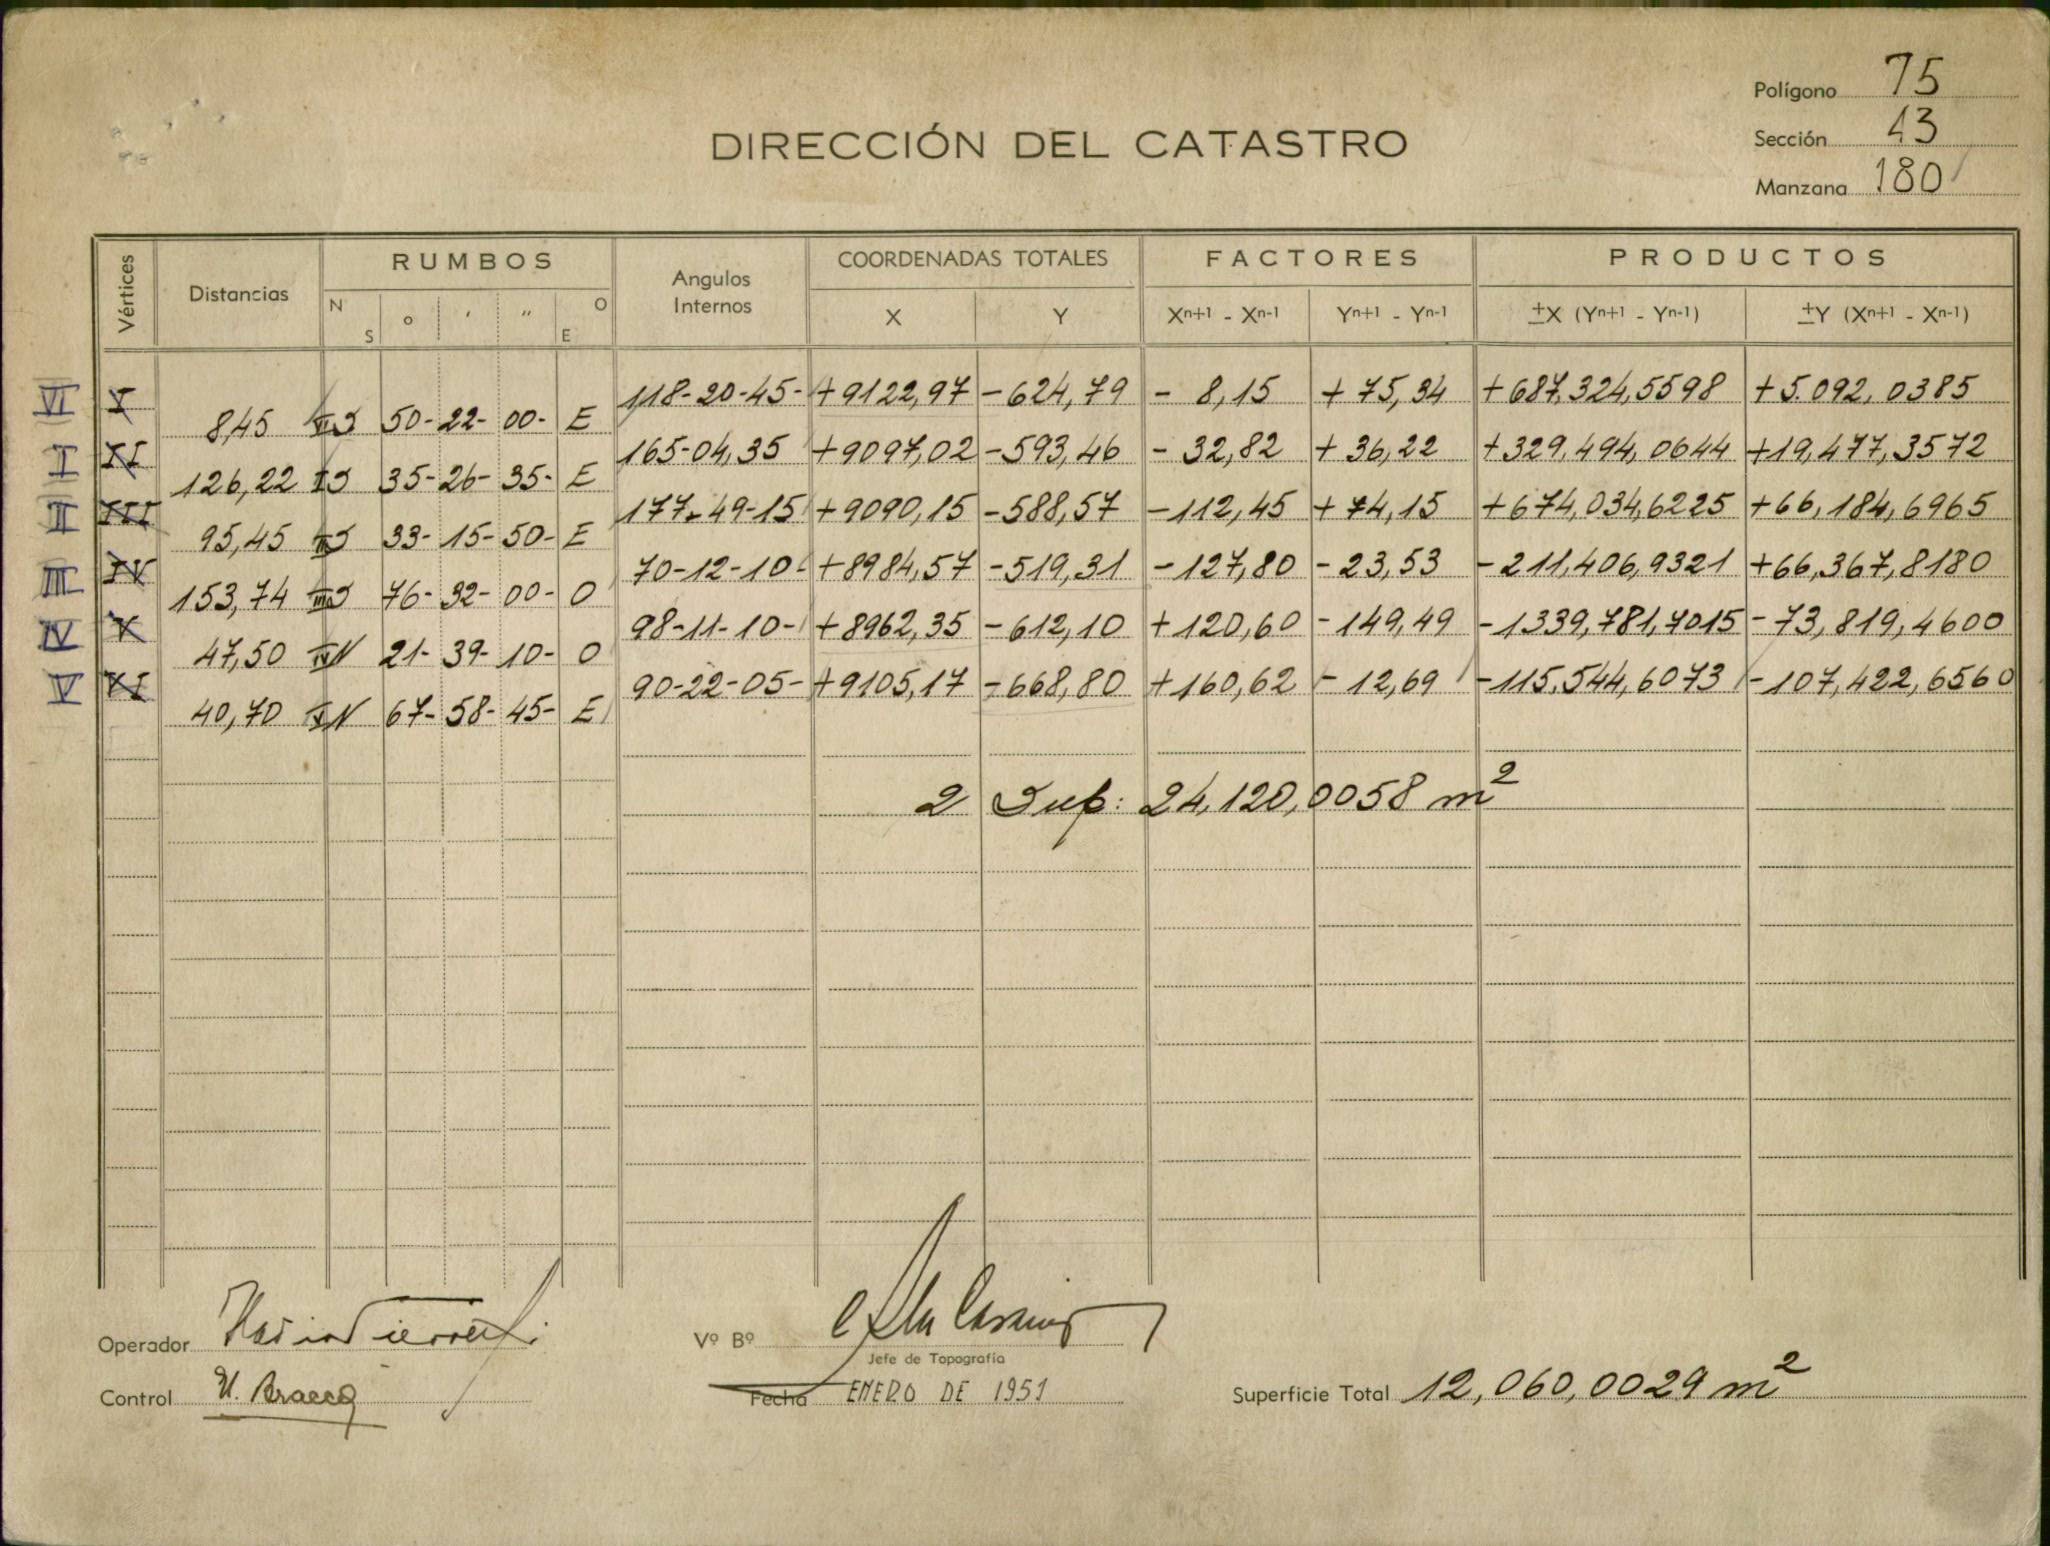 Polígono 75
DIRECCIÓN DEL CATASTRO
Sección 43
Manzana 180
Vértices Distancias RUMBOS Angulos Internos COORDENADAS TOTALES FACTORES PRODUCTOS
N S o ' " O E X Y Xn+1 - Xn-1 Yn+1 - Yn-1 ±X (Yn+1 - Yn-1) ±Y (Xn+1 - Xn-1)
VI I 118-20-45- +9122,97 -624,79 - 8,15 + 75,34 +687,324,5598 +5.092,0385
8,45 VI S 50-22-00- E
I II 165-04,35 +9097,02 -593,46 - 32,82 + 36,22 +329,494,0644 +19,477,3572
126,22 I S 35-26-35- E
II III 177-49-15 +9090,15 -588,57 -112,45 + 74,15 +674,034,6225 +66,184,6965
95,45 II S 33-15-50- E
III IV 70-12-10- +8984,57 -519,31 -127,80 - 23,53 -211,406,9321 +66,367,8180
153,74 III S 76-32-00- O
IV V 98-11-10- +8962,35 -612,10 +120,60 -149,49 -1339,781,7015 -73,819,4600
47,50 IV N 21-39-10- O
V VI 90-22-05- +9105,17 -668,80 +160,62 - 12,69 -115,544,6073 -107,422,6560
40,70 V N 67-58-45- E
2 Sup: 24,120,0058 m²
Operador
Vº Bº
Jefe de Topografía
Control U. Bracco
Fecha ENERO DE 1951
Superficie Total 12,060,0029 m²